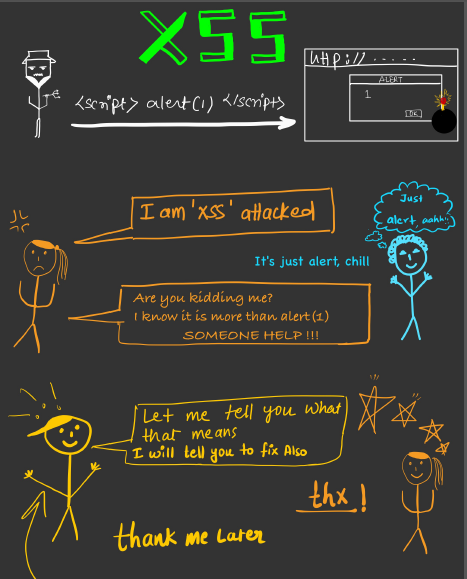 XSS
http://.....
ALERT
1
OK
<script> alert(1) </script>
I am 'XSS' attacked
Just
alert, aahh!!
It's just alert, chill
Are you kidding me?
I know it is more than alert(1)
SOMEONE HELP !!!
Let me tell you what
that means
I will tell you to fix Also
thx !
thank me Later